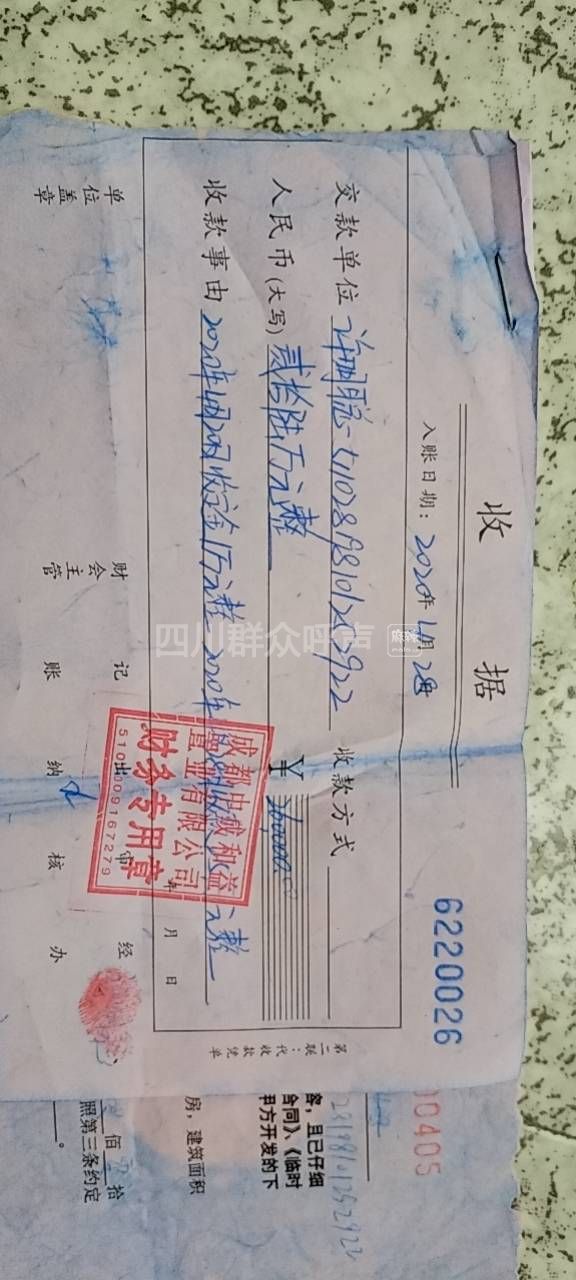 收据
6220026
入账日期：2020年4月28日
交款单位 511028198101252922 收款方式
人民币（大写）贰拾陆万元整 ¥260000.0
收款事由 2020年4月20日收定金1万元整 2020年 元整
年 月 日
成都中威和益
置业有限公司
财务专用章
5101009167279
单位盖章 财会主管 记账 出纳 审核 经办
第二联：代收款凭单
四川群众呼声
00405
28198101252922
容，且已仔细
合同》、《临时
甲方开发的下
房，建筑面积
佰 拾
照第三条约定
。